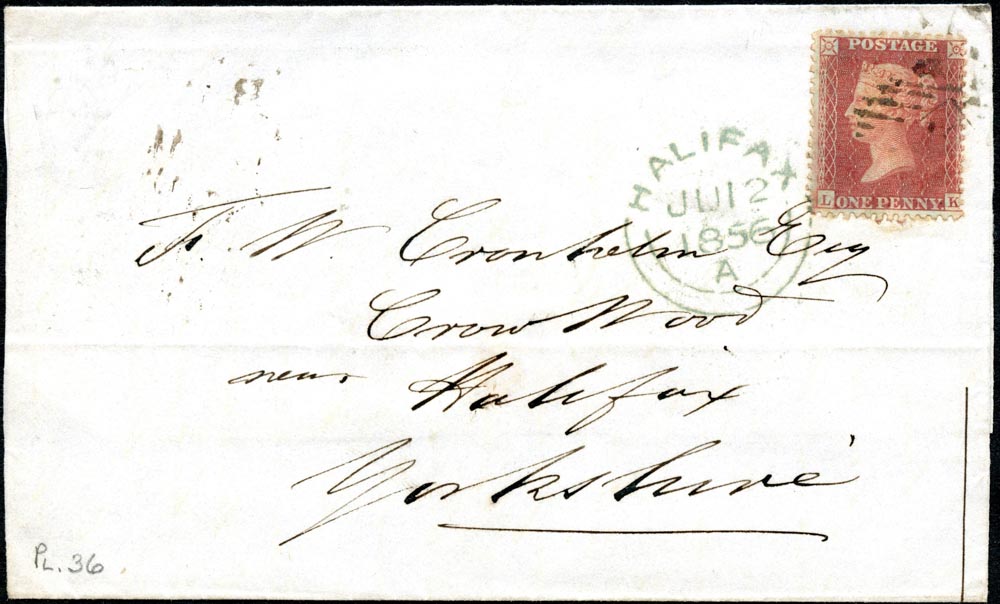 POSTAGE
L ONE PENNY K
HALIFAX
JU 12
1856
A
F. W. Cronhelm Esq
Crow Wood
near Halifax
Yorkshire
PL. 36